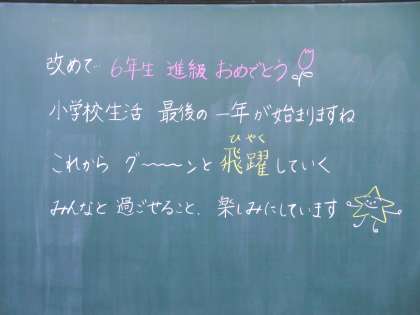 改めて… 6年生 進級 おめでとう
小学校生活 最後の 一年が始まりますね
ひやく
これから グ〜〜〜ンと 飛躍していく
みんなと 過ごせること、楽しみにしています